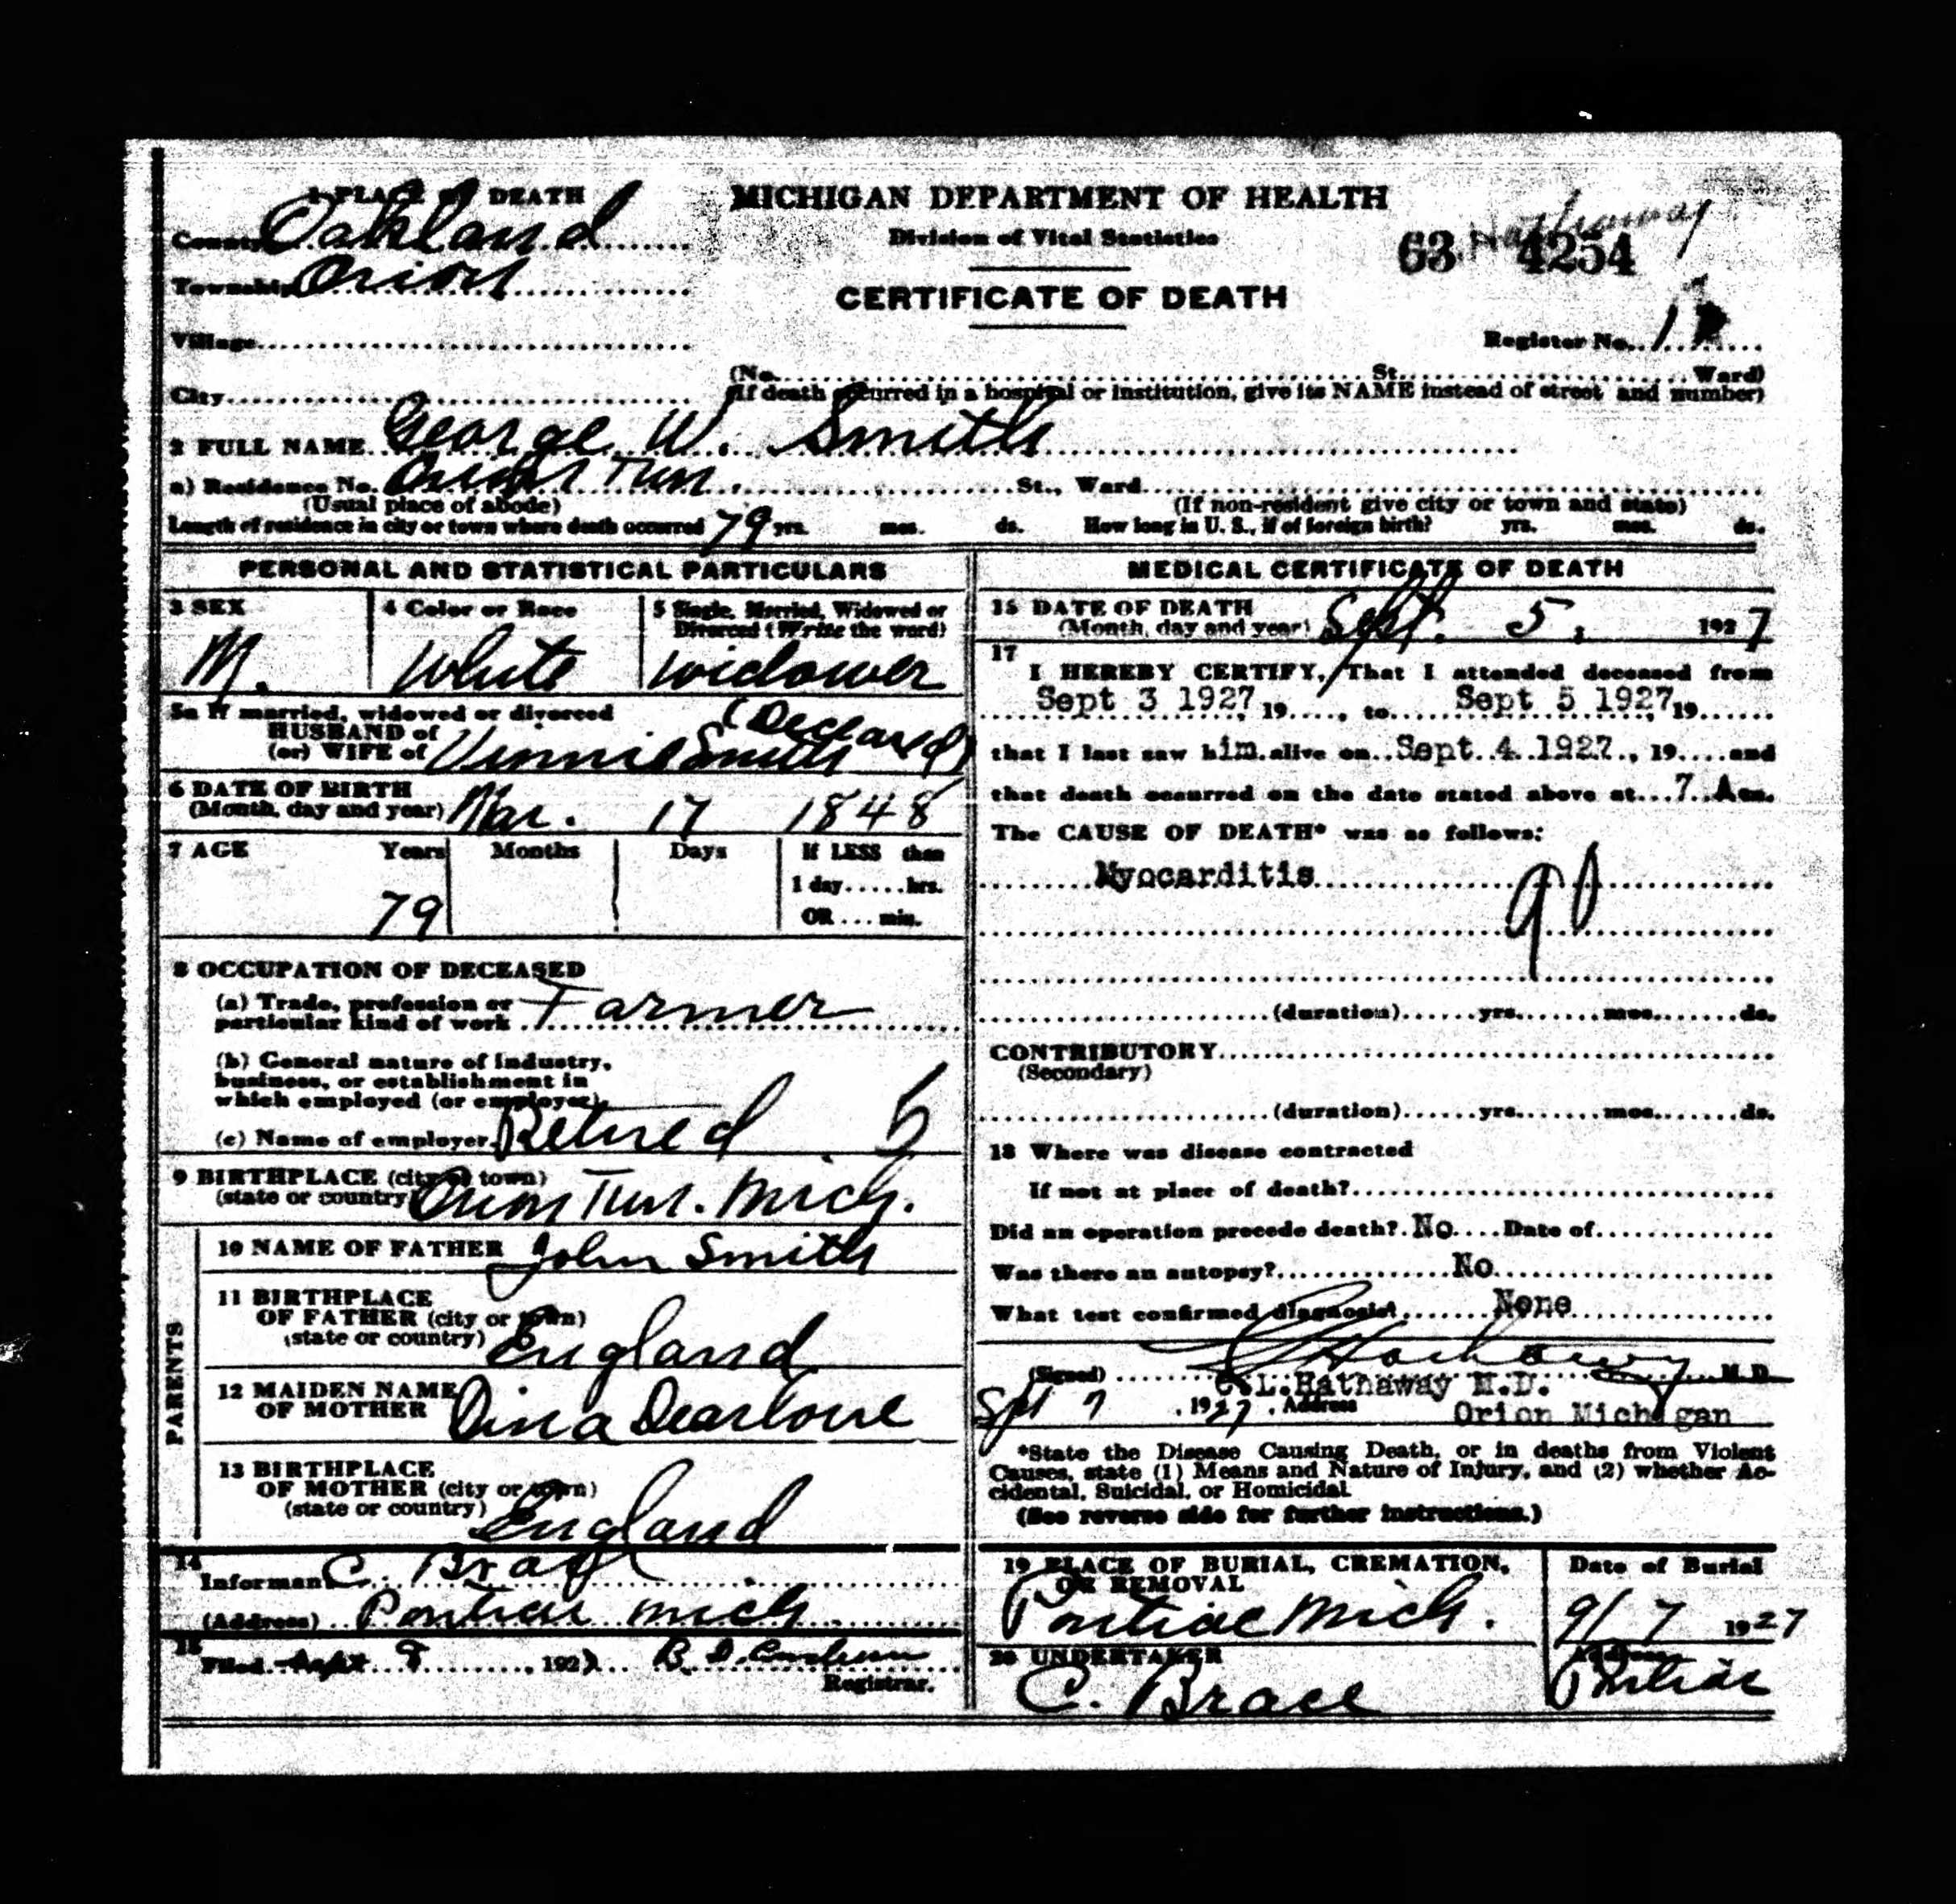 1 PLACE OF DEATH
County Oakland
Township Orion
Village
City
MICHIGAN DEPARTMENT OF HEALTH
Division of Vital Statistics
CERTIFICATE OF DEATH
Hathaway
63 4254
Register No.
(No. St. Ward)
(If death occurred in a hospital or institution, give its NAME instead of street and number)
2 FULL NAME George W. Smith
a) Residence No. Orion Twn. St., Ward
(Usual place of abode) (If non-resident give city or town and state)
Length of residence in city or town where death occurred 79 yrs. mos. ds. How long in U. S., if of foreign birth? yrs. mos. ds.
PERSONAL AND STATISTICAL PARTICULARS
3 SEX
M.
4 Color or Race
White
5 Single, Married, Widowed or
Divorced (Write the word)
Widower
5a If married, widowed or divorced
HUSBAND of
(or) WIFE of Vinnie Smith (Deceased)
6 DATE OF BIRTH
(Month, day and year) Mar. 17 1848
7 AGE Years Months Days If LESS than
1 day......hrs.
OR....min.
79
8 OCCUPATION OF DECEASED
(a) Trade, profession or
particular kind of work Farmer
(b) General nature of industry,
business, or establishment in
which employed (or employer)
(c) Name of employer Retired
9 BIRTHPLACE (city or town)
(state or country) Orion Twn. Mich.
PARENTS
10 NAME OF FATHER John Smith
11 BIRTHPLACE
OF FATHER (city or town)
(state or country) England
12 MAIDEN NAME
OF MOTHER Dina Dearlove
13 BIRTHPLACE
OF MOTHER (city or town)
(state or country) England
14
Informant C.
(Address) Pontiac Mich
15
Filed Sept 192
Registrar.
MEDICAL CERTIFICATE OF DEATH
16 DATE OF DEATH
(Month, day and year) Sept. 5, 1927
17
I HEREBY CERTIFY, That I attended deceased from
Sept 3 1927, 19...., to Sept 5 1927 19
that I last saw him alive on Sept 4 1927, 19....and
that death occurred on the date stated above at 7 A m.
The CAUSE OF DEATH* was as follows:
Myocarditis
90
(duration) yrs. mos. ds.
CONTRIBUTORY
(Secondary)
(duration) yrs. mos. ds.
18 Where was disease contracted
If not at place of death?
Did an operation precede death? No Date of
Was there an autopsy? No
What test confirmed diagnosis? None
(Signed) Hathaway M. D.
L. Hathaway M.D.
Sept 7, 1927, Address Orion Michigan
*State the Disease Causing Death, or in deaths from Violent
Causes, state (1) Means and Nature of Injury, and (2) whether Ac-
cidental, Suicidal, or Homicidal.
(See reverse side for further instructions.)
19 PLACE OF BURIAL, CREMATION,
OR REMOVAL
Pontiac Mich.
Date of Burial
9/7 1927
20 UNDERTAKER
C. Brace
Address
Pontiac